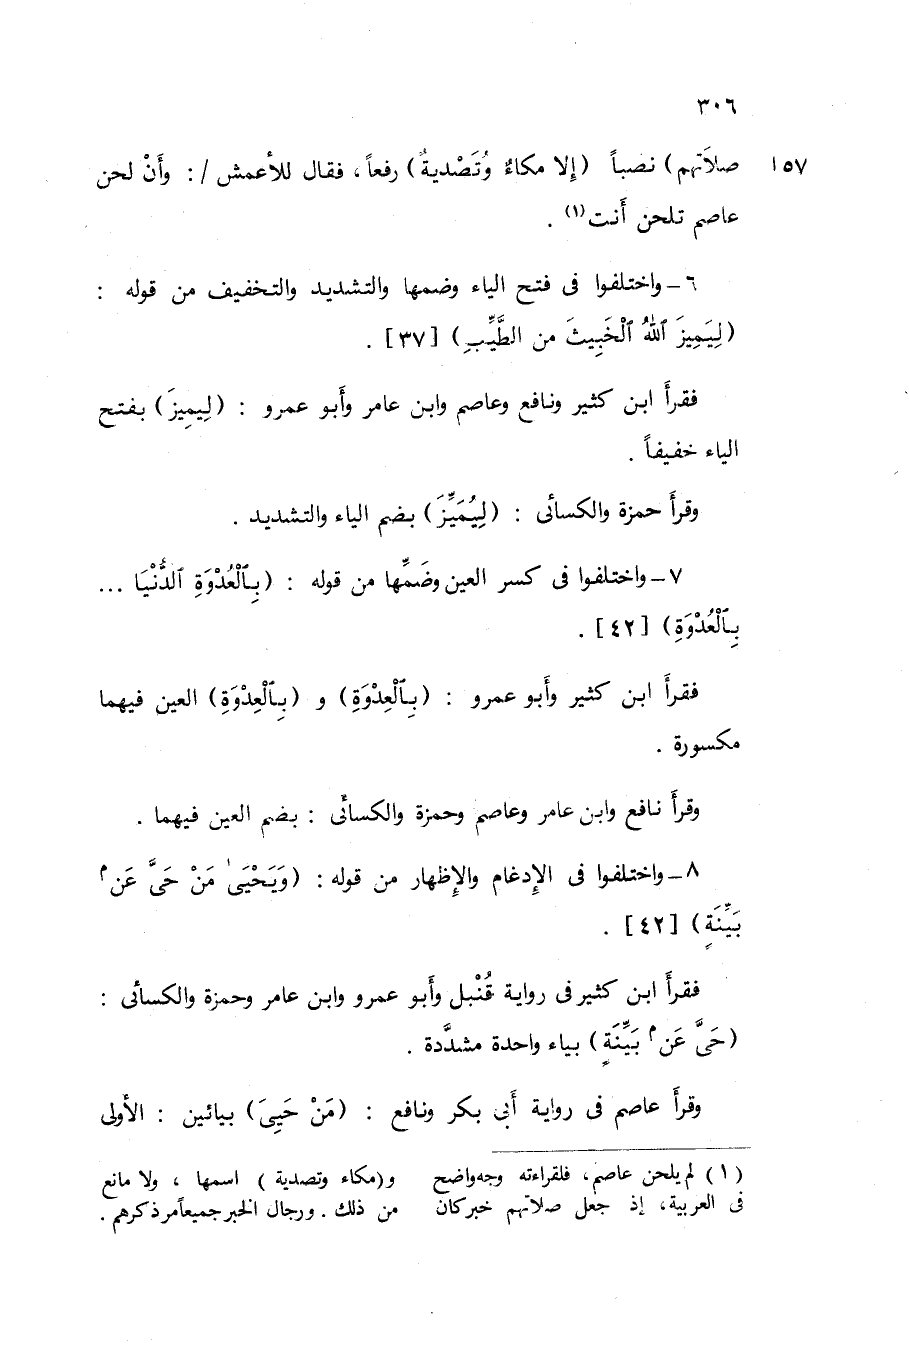 ٣٠٦
١٥٧ صلاَتَهم) نصباً (إلا مكاءٌ وُتَصْديةٌ) رفعاً ، فقال للأعمش / : وأَنْ لحن
عاصم تلحن أَنت(١) .
٦ ــ واختلفوا فى فتح الياء وضمها والتشديد والتخفيف من قوله :
(لِيَمِيزَ ٱللهُ ٱلْخَبِيثَ من الطَّيِّبِ) [٣٧] .
فقرأَ ابن كثير ونافع وعاصم وابن عامر وأَبو عمرو : (لِيميزَ) بفتح
الياء خفيفاً .
وقرأَ حمزة والكسائى : (لِيُمَيِّزَ) بضم الياء والتشديد .
٧ ــ واختلفوا فى كسر العين وضَمِّها من قوله : (بِٱلْعُدْوَةِ ٱلدُّنْيَا ...
بِٱلْعُدْوَةِ) [٤٢] .
فقرأَ ابن كثير وأَبو عمرو : (بِٱلْعِدْوَةِ) و (بِٱلْعِدْوَةِ) العين فيهما
مكسورة .
وقرأَ نافع وابن عامر وعاصم وحمزة والكسائى : بضم العين فيهما .
٨ ــ واختلفوا فى الإِدغام والإِظهار من قوله : (وَيَحْيَىٰ مَنْ حَىَّ عَن ۢ
بَيِّنَةٍ) [٤٢] .
فقرأَ ابن كثير فى رواية قُنْبل وأَبو عمرو وابن عامر وحمزة والكسائى :
(حَىَّ عَن ۢ بَيِّنَةٍ) بياء واحدة مشدَّدة .
وقرأَ عاصم فى رواية أَبى بكر ونافع : (مَنْ حَيِىَ) بيائين : الأُولى
(١) لم يلحن عاصم، فلقراءته وجه واضح
فى العربية، إذ جعل صلاتهم خبر كان
و(مكاء وتصدية ) اسمها ، ولا مانع
من ذلك . ورجال الخبر جميعاً مر ذكرهم .